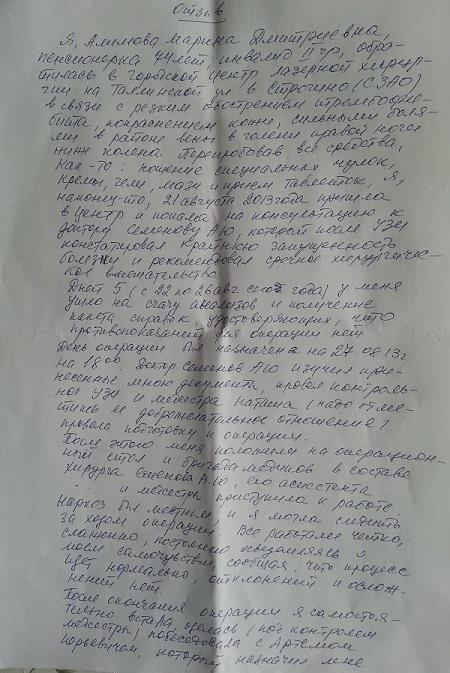 Отзыв
Я, Алимова Марина Дмитриевна,
пенсионерка 74 лет, инвалид II гр, обра-
тилась в городской Центр лазерной хирур-
гии на Таллинской ул в Строгино (СЗАО)
в связи с резким обострением тромбофле-
бита, покраснением кожи, сильными боля-
ми в районе вены в голени правой ноги
ниже колена. Перепробовав все средства,
как-то: ношение специальных чулок,
кремы, гели, мази и прием таблеток, я,
наконец-то, 21 августа 2013 года пришла
в Центр и попала на консультацию к
доктору Семенову А.Ю, который после УЗИ
констатировал крайнюю запущенность
болезни и рекомендовал срочное хирургичес-
кое вмешательство.
Дней 5 (с 22 по 26 авг года) у меня
ушло на сдачу анализов и получение
пакета справок, удостоверяющих, что
противопоказаний для операции нет.
День операции был назначен на 27.08.13г
на 18 00. Доктор Семенов А.Ю изучил при-
несенные мною документы, провел контроль-
ное УЗИ и медсестра Наташа (надо отме-
тить ее доброжелательное отношение)
провела подготовку к операции.
После этого меня положили на операцион-
ный стол и бригада медиков в составе
хирурга Семенова А.Ю, его ассистента
... и медсестры приступила к работе.
Наркоз был местным, и я могла следить
за ходом операции. Все работали четко,
слаженно, постоянно осведомляясь о
моем самочувствии, сообщая, что процесс
идет нормально, отклонений и ослож-
нений нет.
После окончания операции я самостоя-
тельно встала, оделась (под контролем
медсестры) побеседовала с Артемом
Юрьевичем, который назначил мне